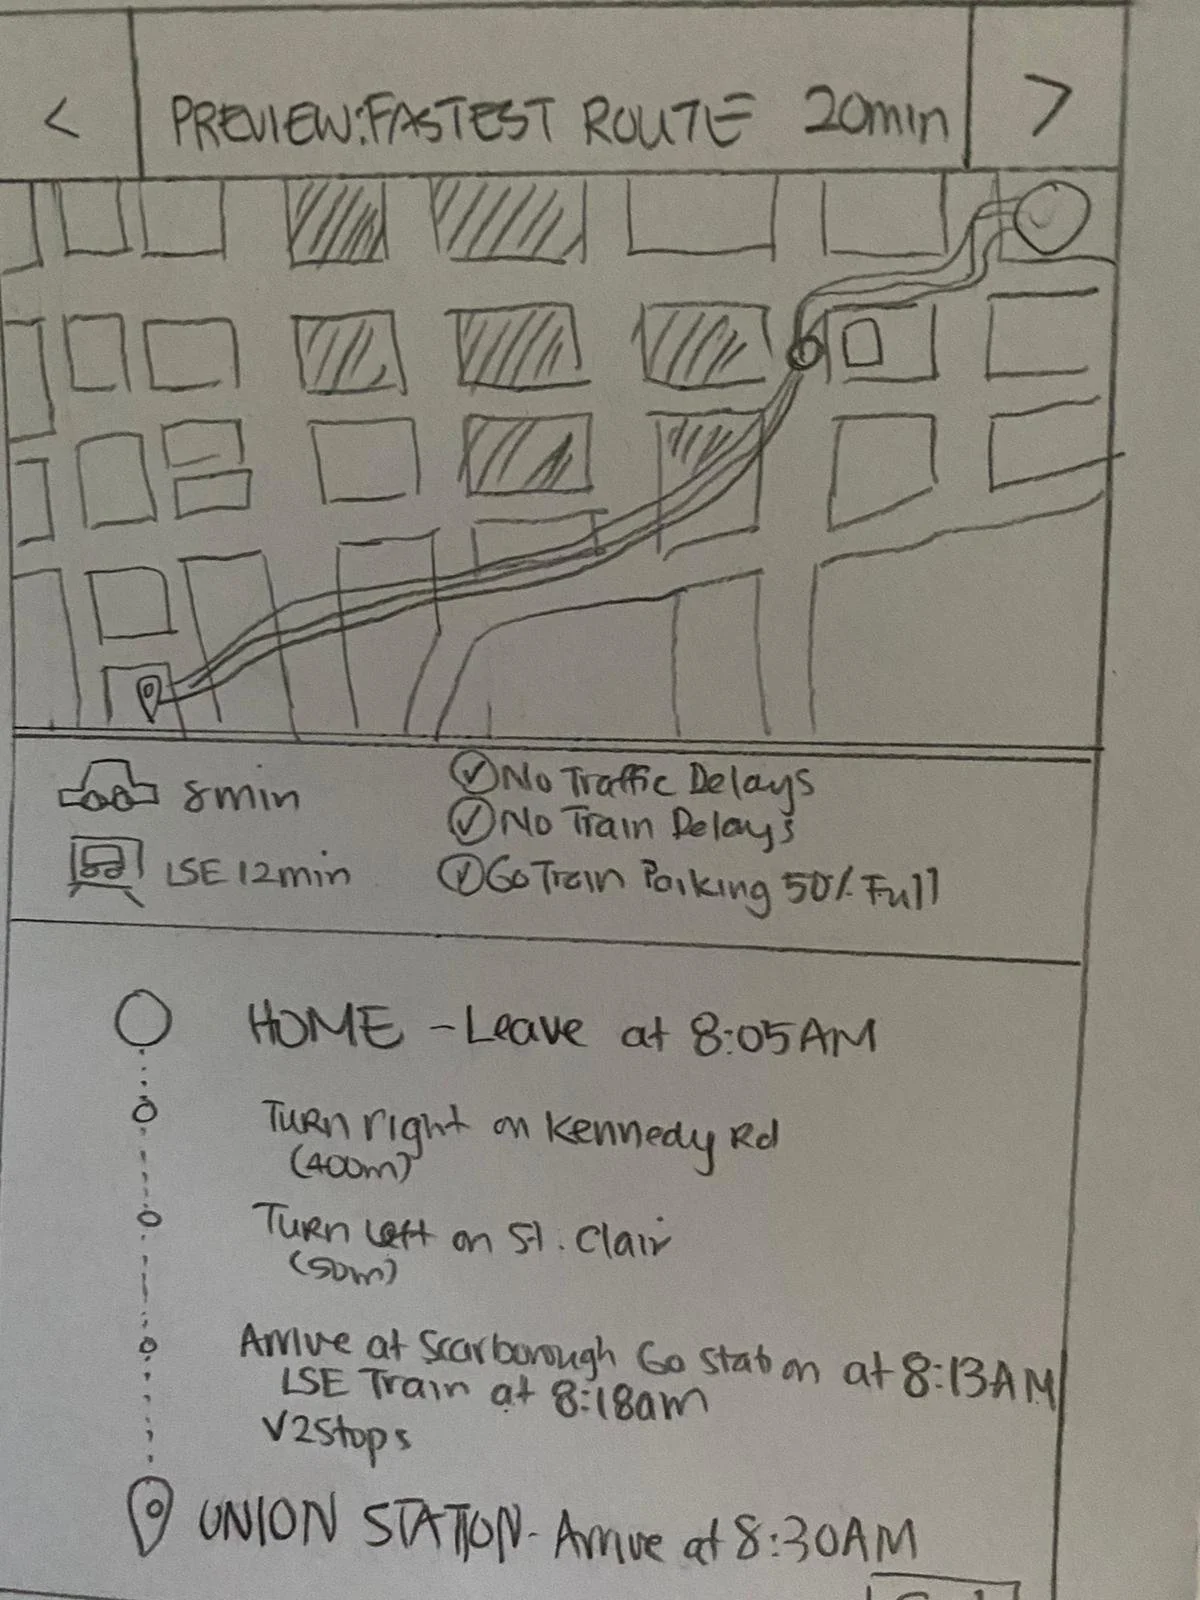 < PREVIEW:FASTEST ROUTE 20min >
8min
No Traffic Delays
No Train Delays
LSE 12min
Go Train Parking 50% Full
HOME - Leave at 8:05AM
Turn right on Kennedy Rd
(400m)
Turn Left on St. Clair
(50m)
Arrive at Scarborough Go Station at 8:13AM
LSE Train at 8:18am
V2Stops
UNION STATION - Arrive at 8:30AM